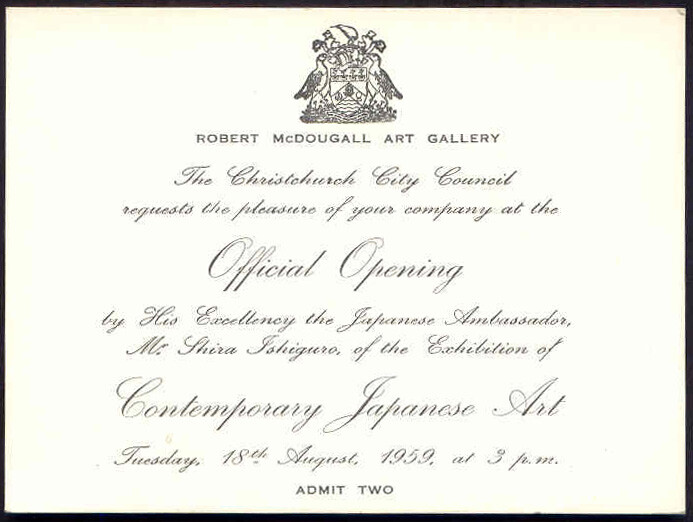 ROBERT McDOUGALL ART GALLERY
The Christchurch City Council
requests the pleasure of your company at the
Official Opening
by His Excellency the Japanese Ambassador,
Mr. Shira Ishiguro, of the Exhibition of
Contemporary Japanese Art
Tuesday, 18th August, 1959, at 3 p.m.
ADMIT TWO